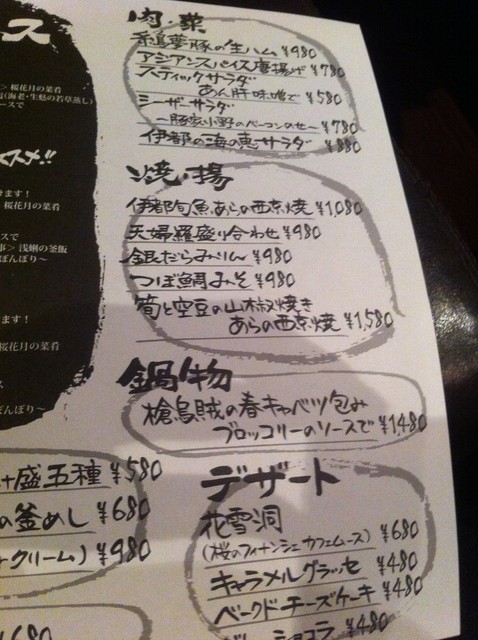 肉・菜
糸島華豚の生ハム ¥980
アジアンスパイス唐揚げ ¥780
スティックサラダ
あん肝味噌で ¥580
シーザーサラダ
～豚家小野のベーコンのせ～ ¥780
伊都の海の恵サラダ ¥880
焼・揚
伊都旬魚あらの西京焼 ¥1,080
天婦羅盛り合わせ ¥980
銀だらみりん ¥980
つぼ鯛みそ ¥980
筍と空豆の山椒焼き
あらの西京焼 ¥1,580
鍋物
槍烏賊の春キャベツ包み
ブロッコリーのソースで ¥1,480
デザート
花雪洞
(桜のフィナンシェカフェムース) ¥680
キャラメルグラッセ ¥480
ベークドチーズケーキ ¥480
ショコラ ¥480
ス
> 桜花月の菜肴
(海老・生麩の若草蒸し)
ースで
スメ!!
きます！
桜花月の菜肴
スで
事> 浅蜊の釜飯
ぼんぼり～
ます！
桜花月の菜肴
ス
ぼんぼり～
盛五種 ¥580
の釜めし ¥680
クリーム) ¥980
¥680